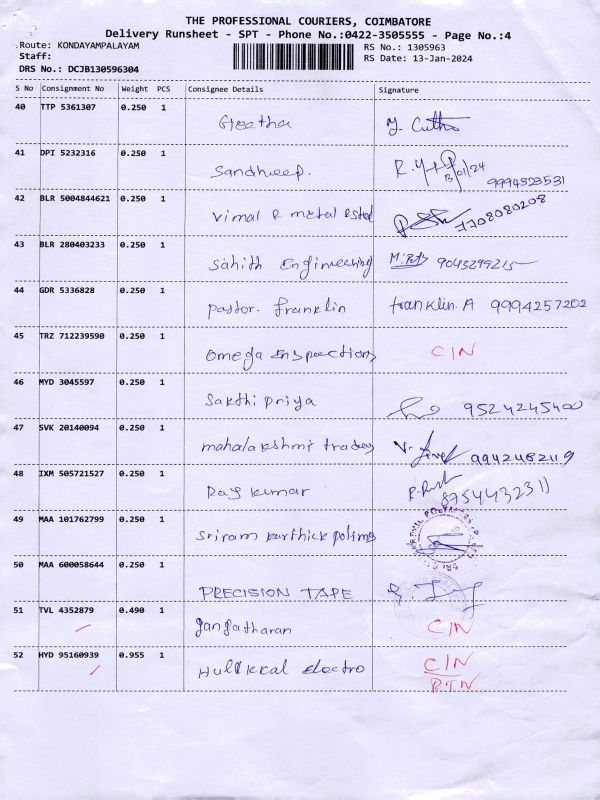 THE PROFESSIONAL COURIERS, COIMBATORE
Delivery Runsheet - SPT - Phone No.:0422-3505555 - Page No.:4
Route: KONDAYAMPALAYAM RS No.: 1305963
Staff: RS Date: 13-Jan-2024
DRS No.: DCJB130596304
S No Consignment No Weight PCS Consignee Details Signature
40 TTP 5361307 0.250 1
Geetha
41 DPI 5232316 0.250 1
Sandheep. 13/01/24 9994323531
42 BLR 5004844621 0.250 1
Vimal R metal 7708080208
43 BLR 280403233 0.250 1
Sahith Engineering 9043299215
44 GDR 5336828 0.250 1
Pastor. franklin franklin. A 9994257202
45 TRZ 712239590 0.250 1
Omega Inspections C/N
46 MYD 3045597 0.250 1
Sakthi priya 9524245400
47 SVK 20140094 0.250 1
mahalakshmi traders 9942482119
48 IXM 505721527 0.250 1
Raj kumar 8754432311
49 MAA 101762799 0.250 1
Sriram karthick polims
50 MAA 600058644 0.250 1
PRECISION TAPE
51 TVL 4352879 0.490 1
Gangatharan C/N
52 HYD 95160939 0.955 1
Hulikkal electro C/N
RTN